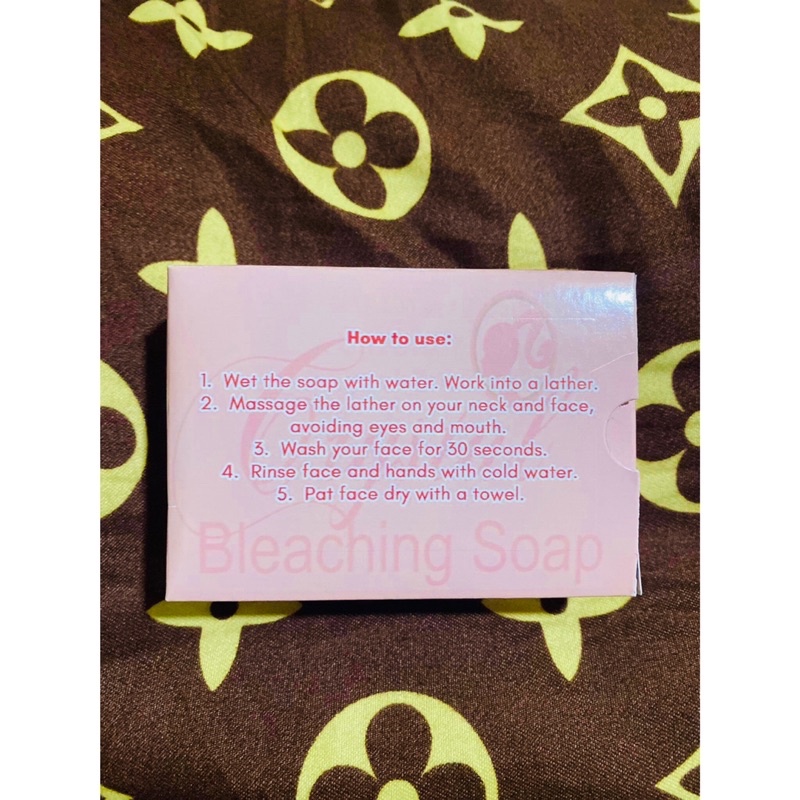 How to use:
1. Wet the soap with water. Work into a lather.
2. Massage the lather on your neck and face,
avoiding eyes and mouth.
3. Wash your face for 30 seconds.
4. Rinse face and hands with cold water.
5. Pat face dry with a towel.
Bleaching Soap